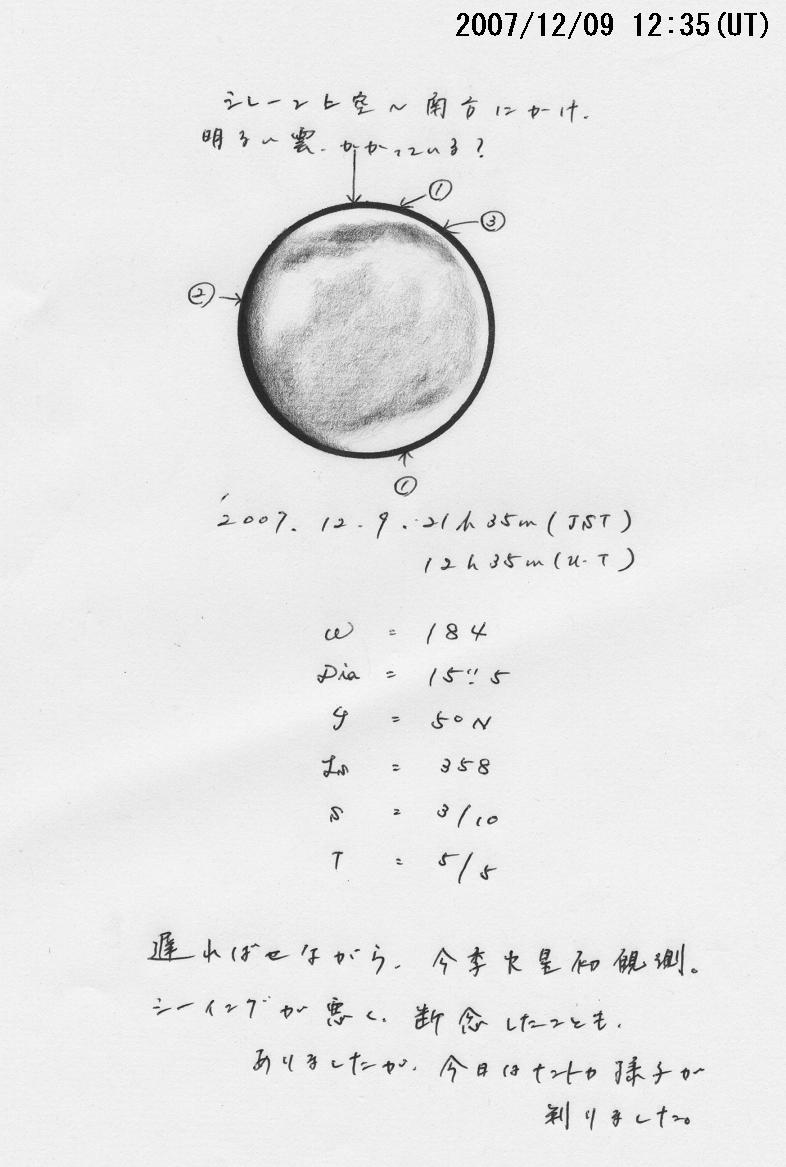 2007/12/09 12:35(UT)
シレーン上空〜南方にかけ、
明るい雲、かかっている?
①
③
②
①
'2007. 12. 9. 21h 35m (JST)
12h 35m (U.T)
ω = 184
Dia = 15".5
φ = 5°N
Ls = 358
S = 3/10
T = 5/5
遅ればせながら、今季火星初観測。
シーイングが悪く、断念したことも、
ありましたが、今日はナントカ様子が
判りました。